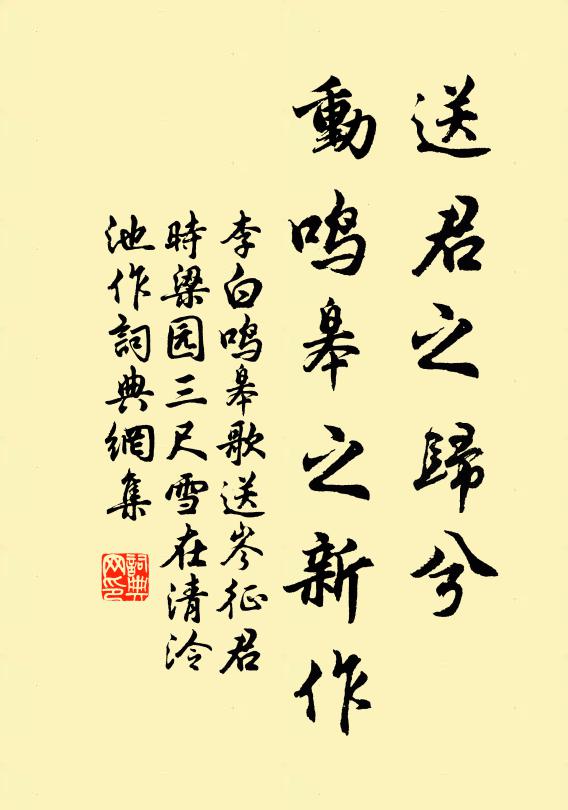 送君之歸兮
動鳴皋之新作
李白鳴皋歌送岑征君
時梁园三尺雪在清泠
池作詞典網集
詞典
网印